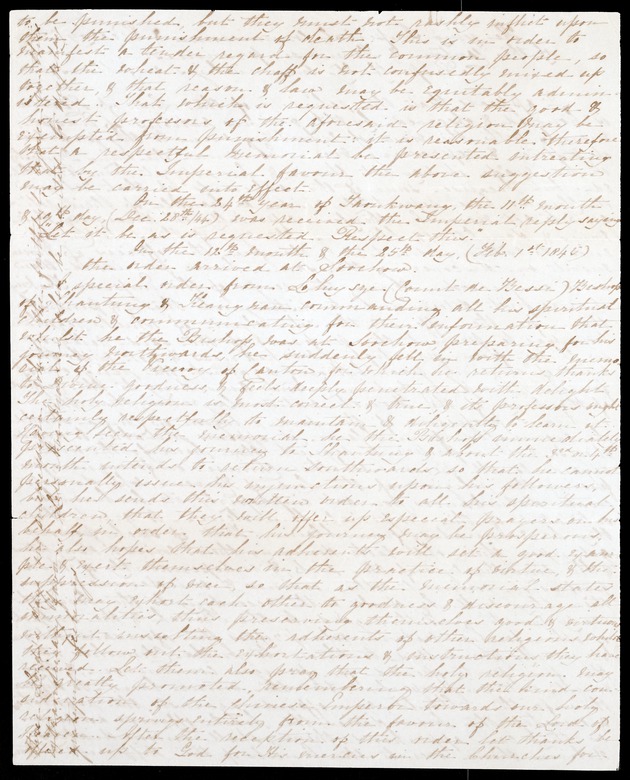 to be punished, but they must not rashly inflict upon
them the punishment of death. This is in order to
manifest a tender regard for the common people, so
that the wheat & the chaff is not confusedly mixed up
together, & that reason & law may be equitably admin-
istered. That which is requested is that the good &
honest professors of the aforesaid religion may be
exempted from punishment. it is reasonable therefore
that a respectful memorial be presented intreating
that by the Imperial favour the above suggestion
may be carried into effect.
On the 24th year of Taoukwang, the 11th month
& 19th day, (Dec. 28th/44) was received the Imperial reply saying
"Let it be as is requested. Respect this."
On the 12th month & the 25th day, (Feb. 1st 1845)
the order arrived at Soochow.
A special order from (Count de Besi) Bishop
of Shantung & Keangnan commanding all his spiritual
children & communicating for their information that,
whilst he the Bishop was at Soochow preparing for his
journey northwards, he suddenly fell in with the memo-
rial of the Viceroy of Canton for which he returns thanks
to divine goodness, & feels deeply penetrated with delight.
The holy religion is most correct & true, & its professors ought
certainly respectfully to maintain & diligently to learn it.
the memorial, the Bishop immediately
his journey to Shantung & about the 3rd or 4th
month intends to return southwards, so that he cannot
personally issue his injunctions upon his followers,
he sends this written order to all his spiritual
children, that they will offer up especial prayers on his
behalf in order that his journey may be prosperous,
he also hopes that his adherents will set a good exam-
ple & exert themselves in the practice of virtue, & the
suppression of vice, so that as the memorial states
they may exhort each other to goodness & discourage all
thus preserving themselves good & virtuous
the adherents of other religions whilst
they follow out the exhortations & instructions they have
received. Let them also pray that the holy religion may
be greatly promoted, remembering that the kind con-
sideration of the Chinese Emperor towards our holy
religion springs entirely from the favour of the Lord of
heaven. After the reception of this order let thanks be
offered up to God for His mercies in the Churches for